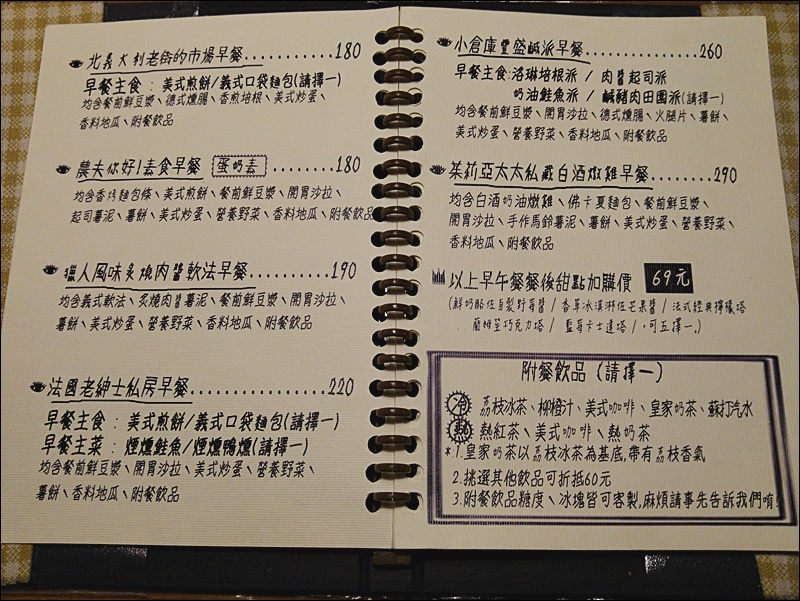 北義大利老街的市場早餐............180
早餐主食：美式煎餅/義式口袋麵包(請擇一)
均含餐前鮮豆漿、德式燻腸、香煎培根、美式炒蛋、
香料地瓜、附餐飲品
農夫你好!素食早餐 蛋奶素 ........180
均含香烤麵包條、美式煎餅、餐前鮮豆漿、開胃沙拉、
起司薯泥、薯餅、美式炒蛋、營養野菜、香料地瓜、附餐飲品
獵人風味炙燒肉醬軟法早餐..........190
均含義式軟法、炙燒肉醬薯泥、餐前鮮豆漿、開胃沙拉、
薯餅、美式炒蛋、營養野菜、香料地瓜、附餐飲品
法國老紳士私房早餐.............220
早餐主食：美式煎餅/義式口袋麵包(請擇一)
早餐主菜：煙燻鮭魚/煙燻鴨燻(請擇一)
均含餐前鮮豆漿、開胃沙拉、美式炒蛋、營養野菜、
薯餅、香料地瓜、附餐飲品
小倉庫豐盛鹹派早餐............260
早餐主食:洛琳培根派 / 肉醬起司派
奶油鮭魚派 / 鹹豬肉田園派(請擇一)
均含餐前鮮豆漿、開胃沙拉、德式燻腸、火腿片、薯餅、
美式炒蛋、營養野菜、香料地瓜、附餐飲品
茱莉亞太太私藏白酒燉雞早餐.......290
均含白酒奶油燉雞、佛卡夏麵包、餐前鮮豆漿、
開胃沙拉、手作馬鈴薯泥、薯餅、美式炒蛋、營養野菜、
香料地瓜、附餐飲品
以上早午餐餐後甜點加購價 69元
(鮮奶酪佐自製野莓醬 / 香草冰淇淋佐芒果醬 / 法式經典檸檬塔
蘭姆葡巧克力塔 / 藍莓卡士達塔 /，可五擇一.)
附餐飲品 (請擇一)
冷 荔枝冰茶、柳橙汁、美式咖啡、皇家奶茶、蘇打汽水
熱 熱紅茶、美式咖啡、熱奶茶
*1.皇家奶茶以荔枝冰茶為基底,帶有荔枝香氣
2.挑選其他飲品可折抵60元
3.附餐飲品糖度、冰塊皆可客製,麻煩請事先告訴我們唷!